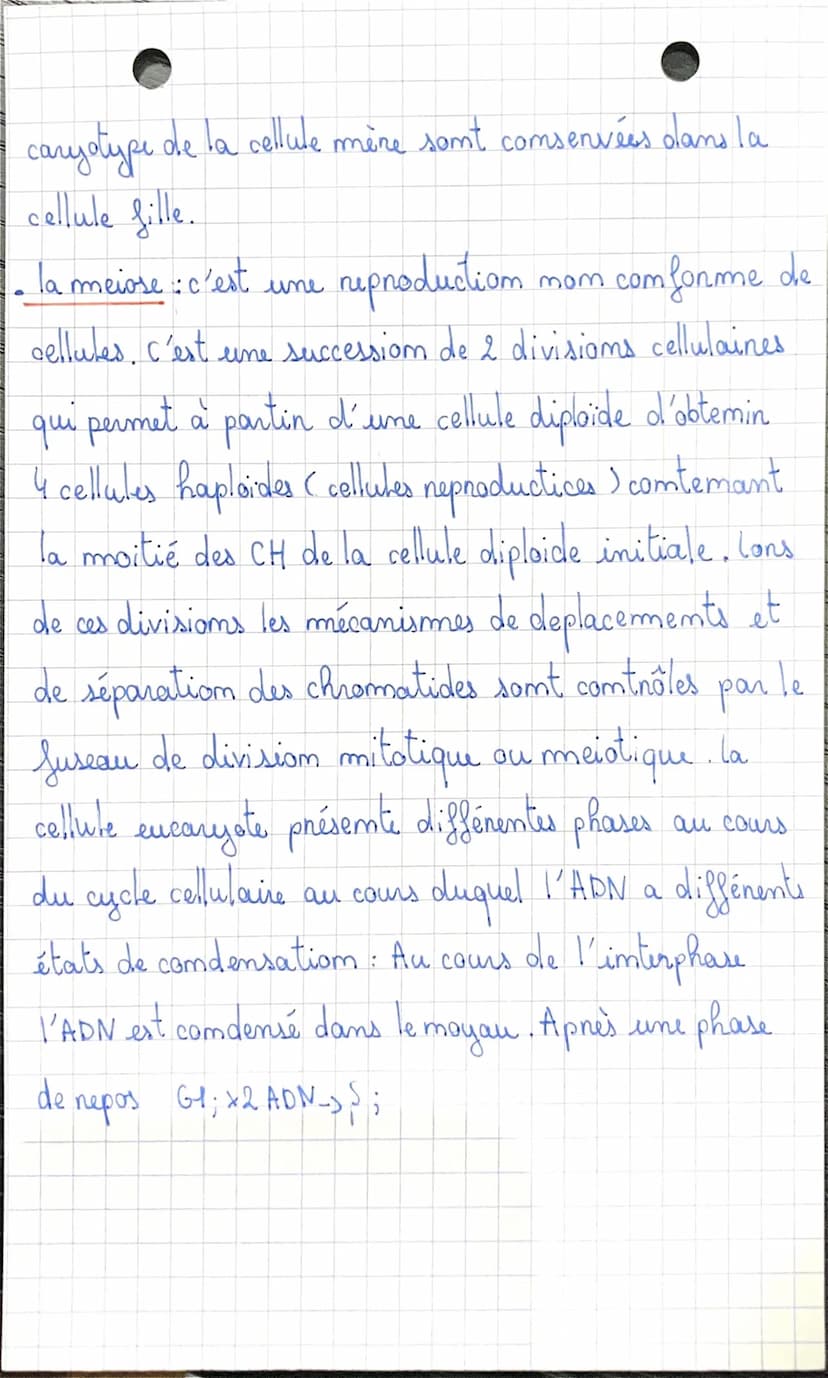 caryotype de la cellule mère sont conservées dans la
cellule fille.
. la meiose : c'est une reproduction non conforme de
cellules. c'est une succession de 2 divisions cellulaires
qui permet à partir d'une cellule diploïde d'obtenir
4 cellules haploïdes ( cellules reproductices ) contenant
la moitié des CH de la cellule diploide initiale. lors
de ces divisions les mécanismes de deplacements et
de séparation des chromatides sont contrôles par le
fuseau de division mitotique ou meiotique. la
cellule eucaryote présente différentes phases au cours
du cycle cellulaire au cours duquel l'ADN a différents
états de condensation : Au cours de l'interphase
l'ADN est condensé dans le noyau. Après une phase
de repos G1 ; x2 ADN -> S ;